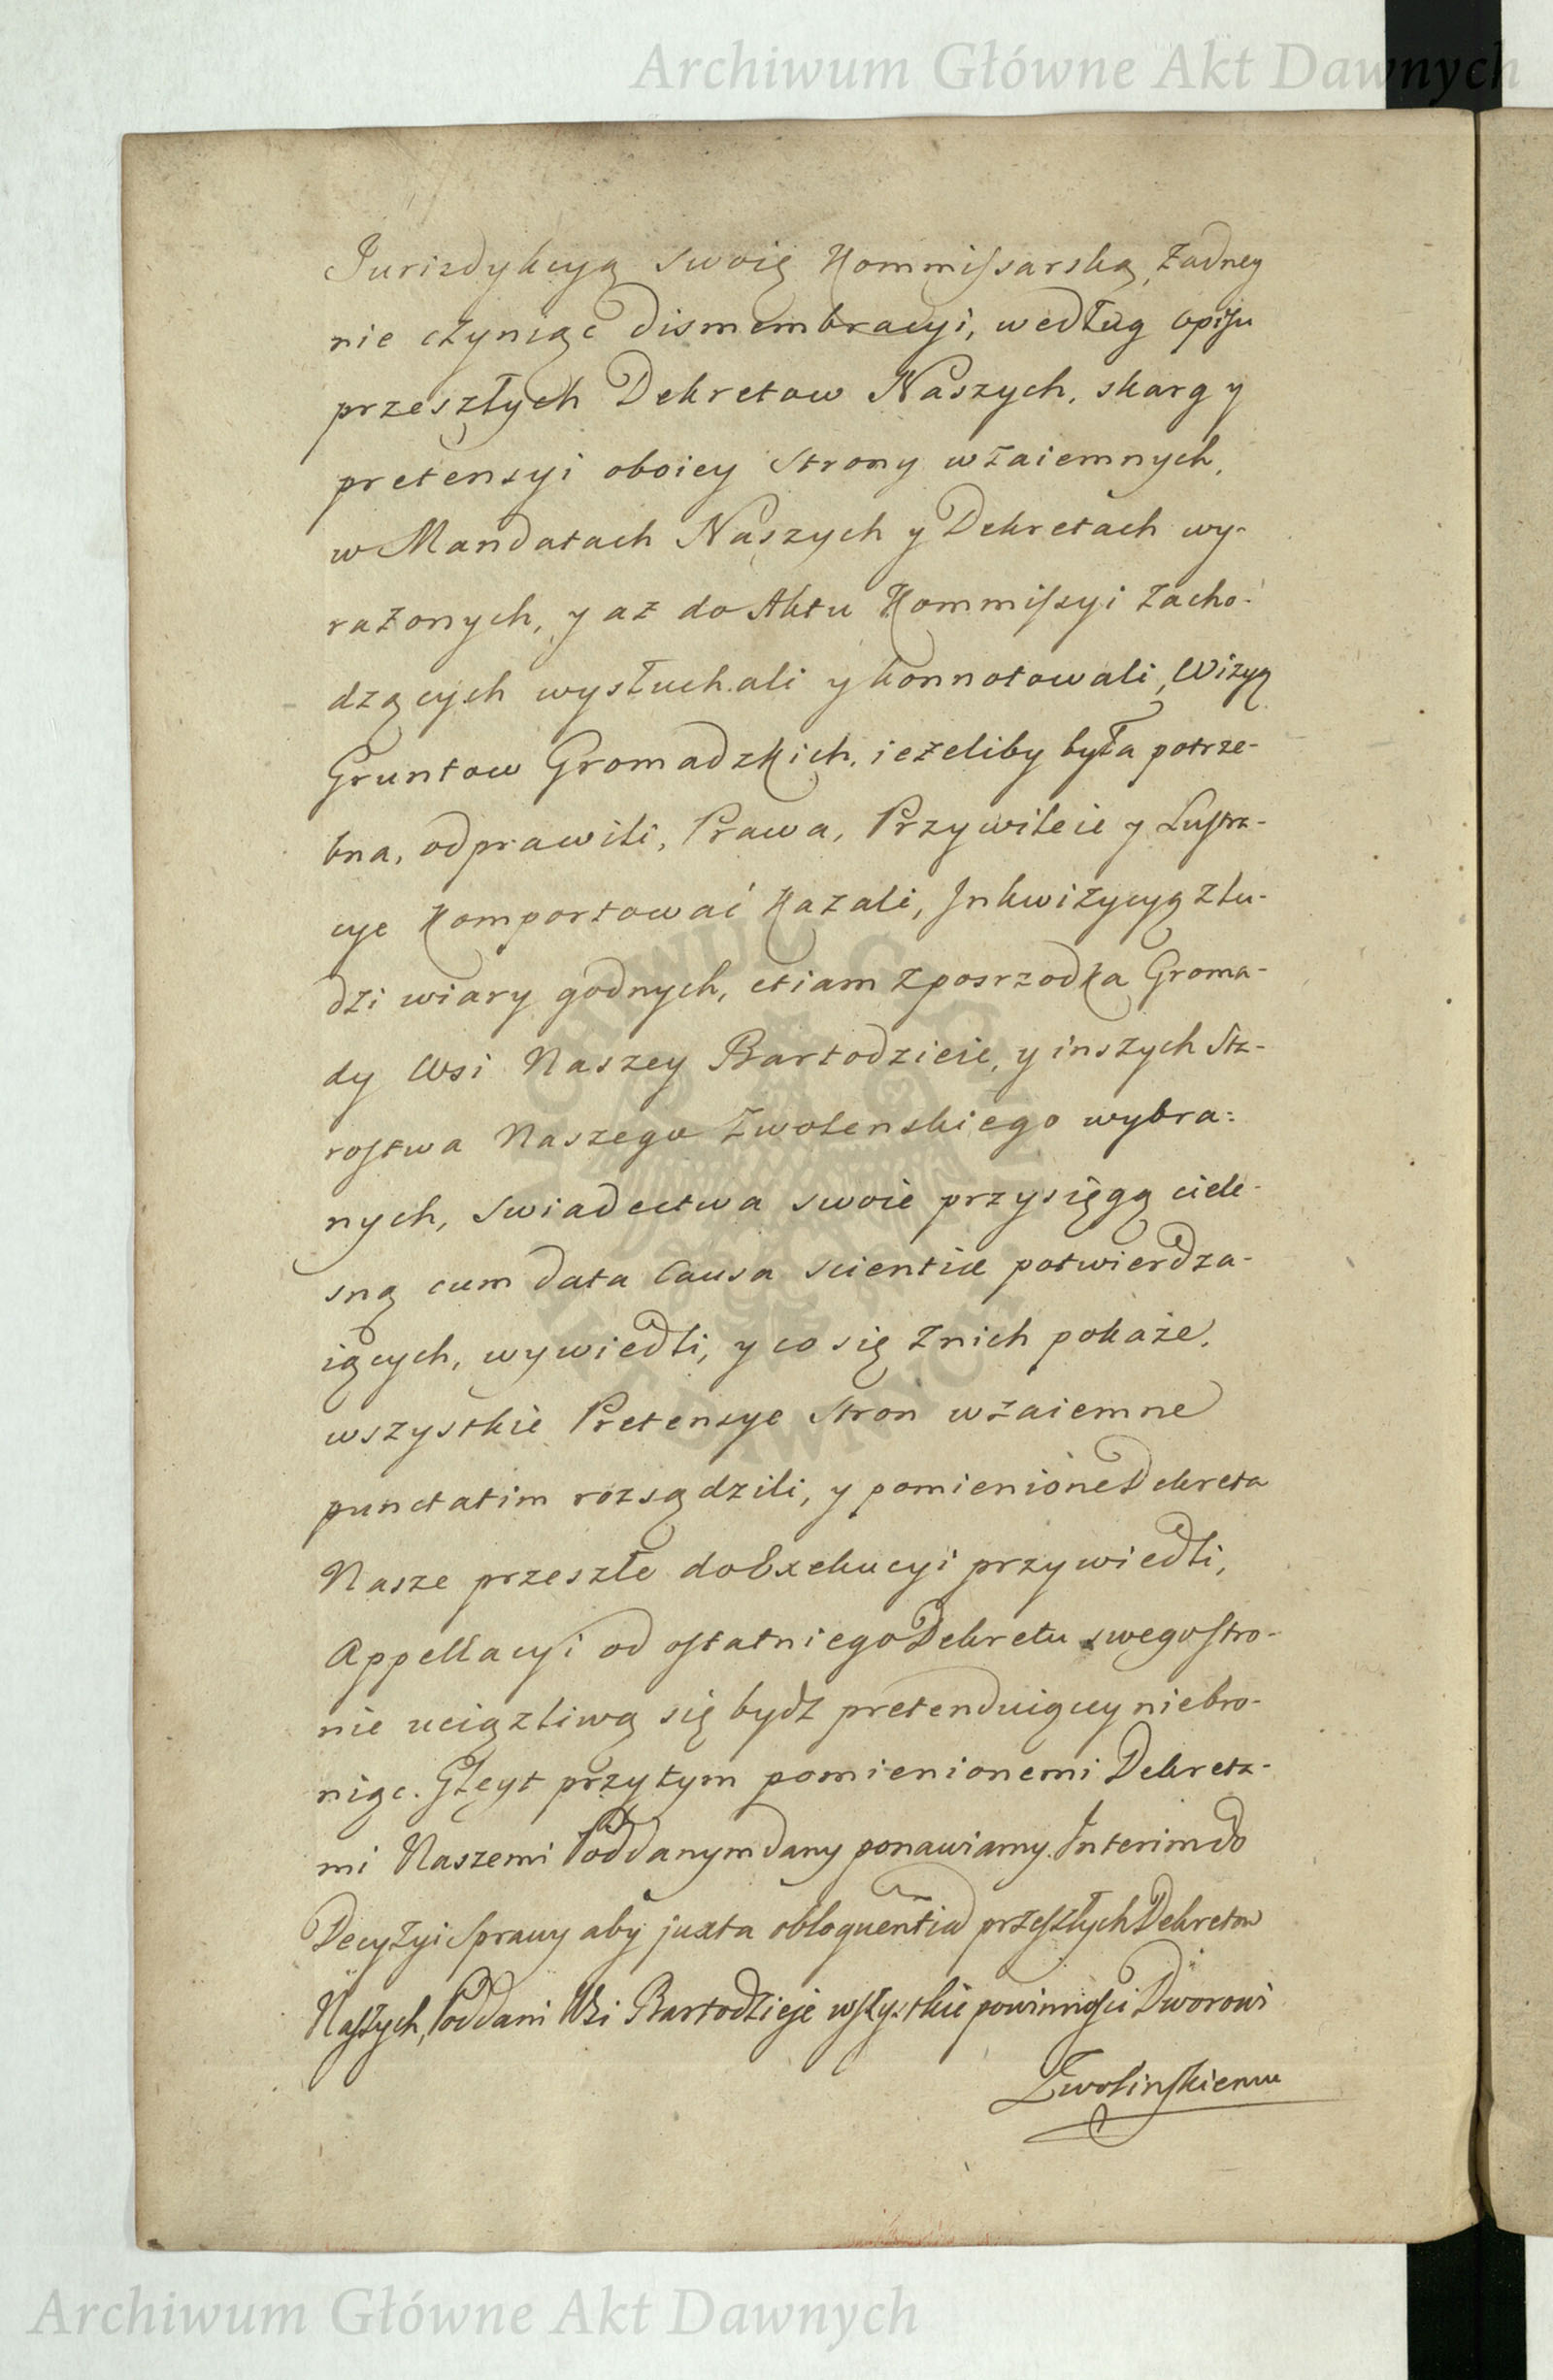 Archiwum Główne Akt Dawnych
Jurizdykcyą swoię Kommissarską, żadney
nie czyniąc dismembracyi, według opisu
przeszłych Dekretow Naszych, skarg y
pretensyi oboiey strony wzaiemnych,
w Mandatach Naszych y Dekretach wy-
rażonych, y aż do Aktu Kommissyi zacho-
dzących wysłuchali y konnotowali, Wizyą
Gruntow Gromadzkich, ieżeliby była potrze-
bna, odprawili, Prawa, Przywileie y Lustra-
cye komportować kazali, Inkwizycyą z lu-
dzi wiary godnych, etiam z posrzodka Groma-
dy Wsi Naszey Bartodzieie, y inszych Sta-
rostwa Naszego Zwolenskiego wybra=
nych, swiadectwa swoie przysięgą ciele-
sną cum data Causa scientiæ potwierdza-
iących, wywiedli, y co się z nich pokaże,
wszystkie Pretensye stron wzaiemne
punctatim rozsądzili, y pomienione Dekreta
Nasze przeszłe do Exekucyi przywiedli,
Appellacyi od ostatniego Dekretu swego stro-
nie uciążliwą się bydź pretenduiącey niebro-
niąc. Gleyt przytym pomienionemi Dekreta-
mi Naszemi Poddanym dany ponawiamy. Interim do
Decyzyi sprawy aby juxta obloquentiã przeszłych Dekretow
Naszych, Poddani Wsi Bartodzieje wszystkie powinności Dworowi
Zwolinskiemu
ARCHIWUM GŁÓWNE AKT DAWNYCH
Archiwum Główne Akt Dawnych